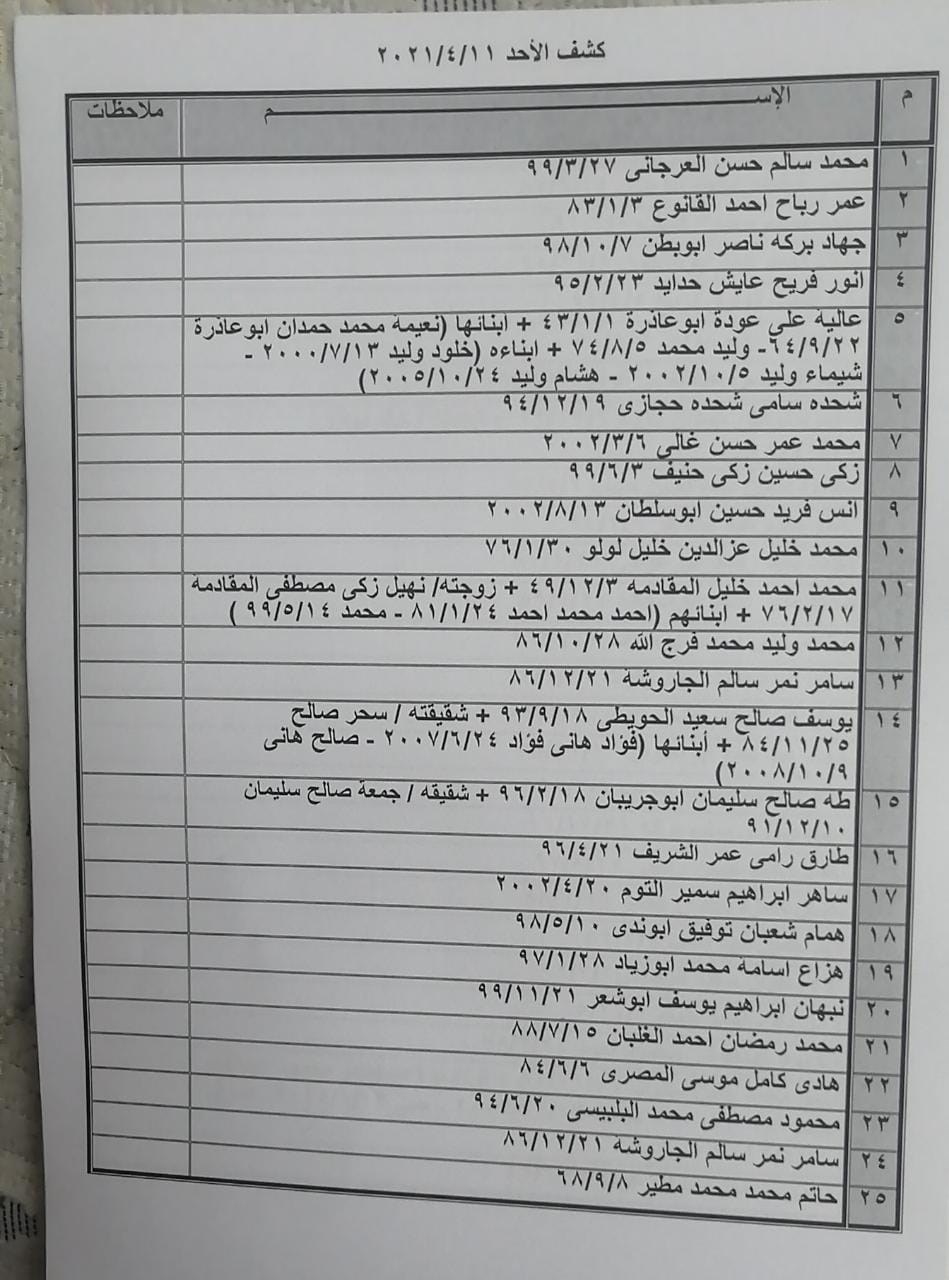 كشف الأحد ٢٠٢١/٤/١١
م الإســـــــــم ملاحظات
١ محمد سالم حسن العرجانى ٩٩/٣/٢٧
٢ عمر رباح احمد القانوع ٨٣/١/٣
٣ جهاد بركه ناصر ابوبطن ٩٨/١٠/٧
٤ انور فريح عايش حدايد ٩٥/٢/٢٣
٥ عالية علي عودة ابوعاذرة ٤٣/١/١ + ابنائها (نعيمة محمد حمدان ابوعاذرة
٦٤/٩/٢٢- وليد محمد ٧٤/٨/٥ + ابناءه (خلود وليد ٢٠٠٠/٧/١٣ -
شيماء وليد ٢٠٠٢/١٠/٥ - هشام وليد ٢٠٠٥/١٠/٢٤)
٦ شحده سامى شحده حجازى ٩٤/١٢/١٩
٧ محمد عمر حسن غالى ٢٠٠٢/٣/٦
٨ زكى حسين زكى حنيف ٩٩/٦/٣
٩ انس فريد حسين ابوسلطان ٢٠٠٢/٨/١٣
١٠ محمد خليل عزالدين خليل لولو ٧٦/١/٣٠
١١ محمد احمد خليل المقادمه ٤٩/١٢/٣ + زوجته/ نهيل زكى مصطفى المقادمة
٧٦/٢/١٧ + ابنائهم (احمد محمد احمد ٨١/١/٢٤ - محمد ٩٩/٥/١٤ )
١٢ محمد وليد محمد فرج الله ٨٦/١٠/٢٨
١٣ سامر نمر سالم الجاروشة ٨٦/١٢/٢١
١٤ يوسف صالح سعيد الحويطى ٩٣/٩/١٨ + شقيقته / سحر صالح
٨٤/١١/٢٥ + أبنائها (فؤاد هانى فؤاد ٢٠٠٧/٦/٢٤ - صالح هانى
٢٠٠٨/١٠/٩)
١٥ طه صالح سليمان ابوجريبان ٩٦/٢/١٨ + شقيقه / جمعة صالح سليمان
٩١/١٢/١٠
١٦ طارق رامى عمر الشريف ٩٦/٤/٢١
١٧ ساهر ابراهيم سمير التوم ٢٠٠٢/٤/٢٠
١٨ همام شعبان توفيق ابوندى ٩٨/٥/١٠
١٩ هزاع اسامة محمد ابوزياد ٩٧/١/٢٨
٢٠ نبهان ابراهيم يوسف ابوشعر ٩٩/١١/٢١
٢١ محمد رمضان احمد الغلبان ٨٨/٧/١٥
٢٢ هادى كامل موسى المصرى ٨٤/٦/٦
٢٣ محمود مصطفى محمد البلبيسى ٩٤/٦/٢٠
٢٤ سامر نمر سالم الجاروشة ٨٦/١٢/٢١
٢٥ حاتم محمد محمد مطير ٦٨/٩/٨